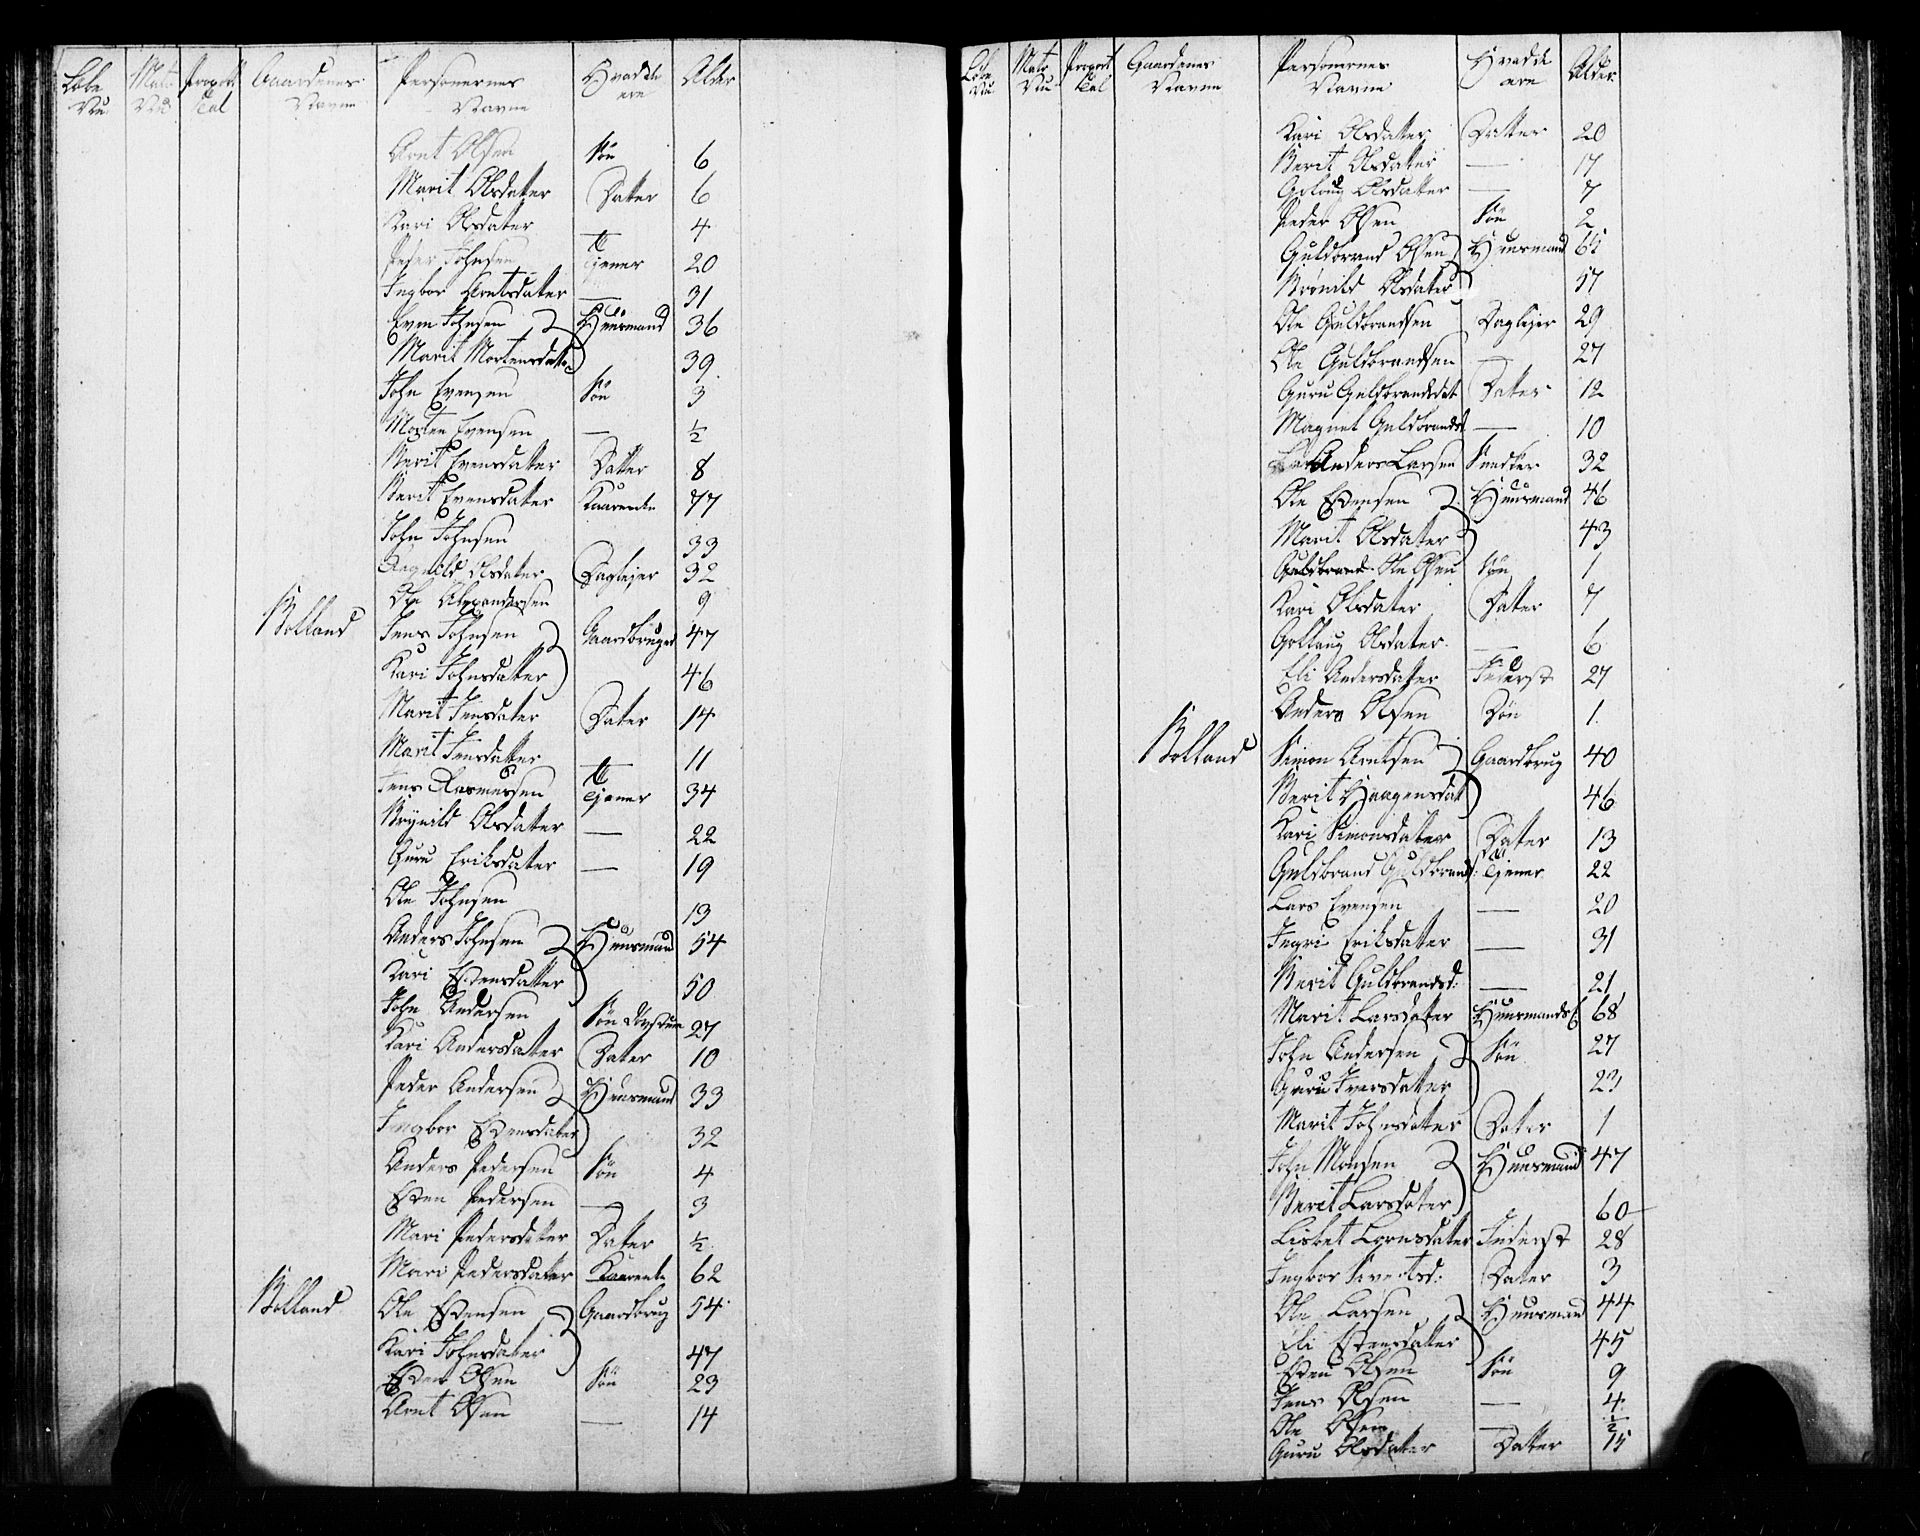 Løbe Nu. Matr Nu Proport Tal Gaardenes Navne Personernes Navne Hvad de ere Alder
Arnt Olsen Søn 6
Marit Olsdatter Datter 6
Kari Olsdater — 4
Peder Johnsen Tjener 20
Ingbor Arntsdater — 31
Even Johnsen Huusmand 36
Marit Mortensdater 39
John Evensen Søn 3
Morten Evensen — ½
Berit Evensdatter Datter 8
Berit Evensdater Kaarente 77
John Johnsen 33
Ragnild Olsdater Daglejer 32
Ole Alexandersen 9
Bolland Jens Johnsen Gaardbruger 47
Kari Johnsdatter 46
Marit Jensdater Dater 14
Marit Jensdatter — 11
Jens Rasmussen Tjener 34
Brynild Olsdatter — 22
Guru Eriksdater — 19
Ole Johnsen 13
Anders Johnsen Huusmand 54
Kari Estensdatter 50
John Andersen Søn 27
Kari Andersdatter Dater 10
Peder Andersen Huusmand 33
Ingbor Estensdater 32
Anders Pedersen Søn 4
Esten Pedersen — 3
Mari Pedersdatter Dater ½
Mari Pedersdater Kaarente 62
Bolland Ole Estensen Gaardbrug 54
Kari Johnsdater 47
Esten Olsen Søn 23
Arnt Olsen — 14
Løbe Nu Matr Nu Proport Tal Gaardenes Navne Personernes Navne Hvad de ere Alder
Kari Olsdatter Datter 20
Berit Olsdatter — 17
Golaug Olsdatter — 7
Peder Olsen Søn 2
Guldbrand Olsen Huusmand 65
Brønild Olsdater 57
Ole Guldbrandsen Daglejer 29
Ole Guldbrandsen — 27
Guru Guldbrandsdat Datter 12
Magnet Guldbrandsd — 10
Anders Larsen Snedker 32
Ole Estensen Huusmand 46
Marit Olsdatter 43
Guldbrand Ole Olsen Søn 1
Kari Olsdater Dater 7
Gollaug Olsdater — 6
Eli Andersdatter Inderst 27
Anders Olsen Søn 1
Bolland Simon Arntsen Gaardbrug 40
Berit Haagensdat 46
Kari Simonsdater Dater 13
Guldbrand Guldbrands: Tjener 22
Lars Evensen — 20
Ingri Eriksdatter — 31
Berit Guldbrandsd: — 21
Marit Larsdatter Huusmands E 68
John Andersen Søn 27
Guru Iversdatter 23
Marit Johnsdatter Dater 1
John Monsen Huusmand 47
Berit Larsdater 60
Lisbet Larsdater Inderst 28
Ingbor Sivertsd: Dater 3
Ole Larsen Huusmand 44
Eli Estensdatter 45
Esten Olsen Søn 9
Jens Olsen — 4
Ole Olsen — ½
Guru Olsdatter Datter 15